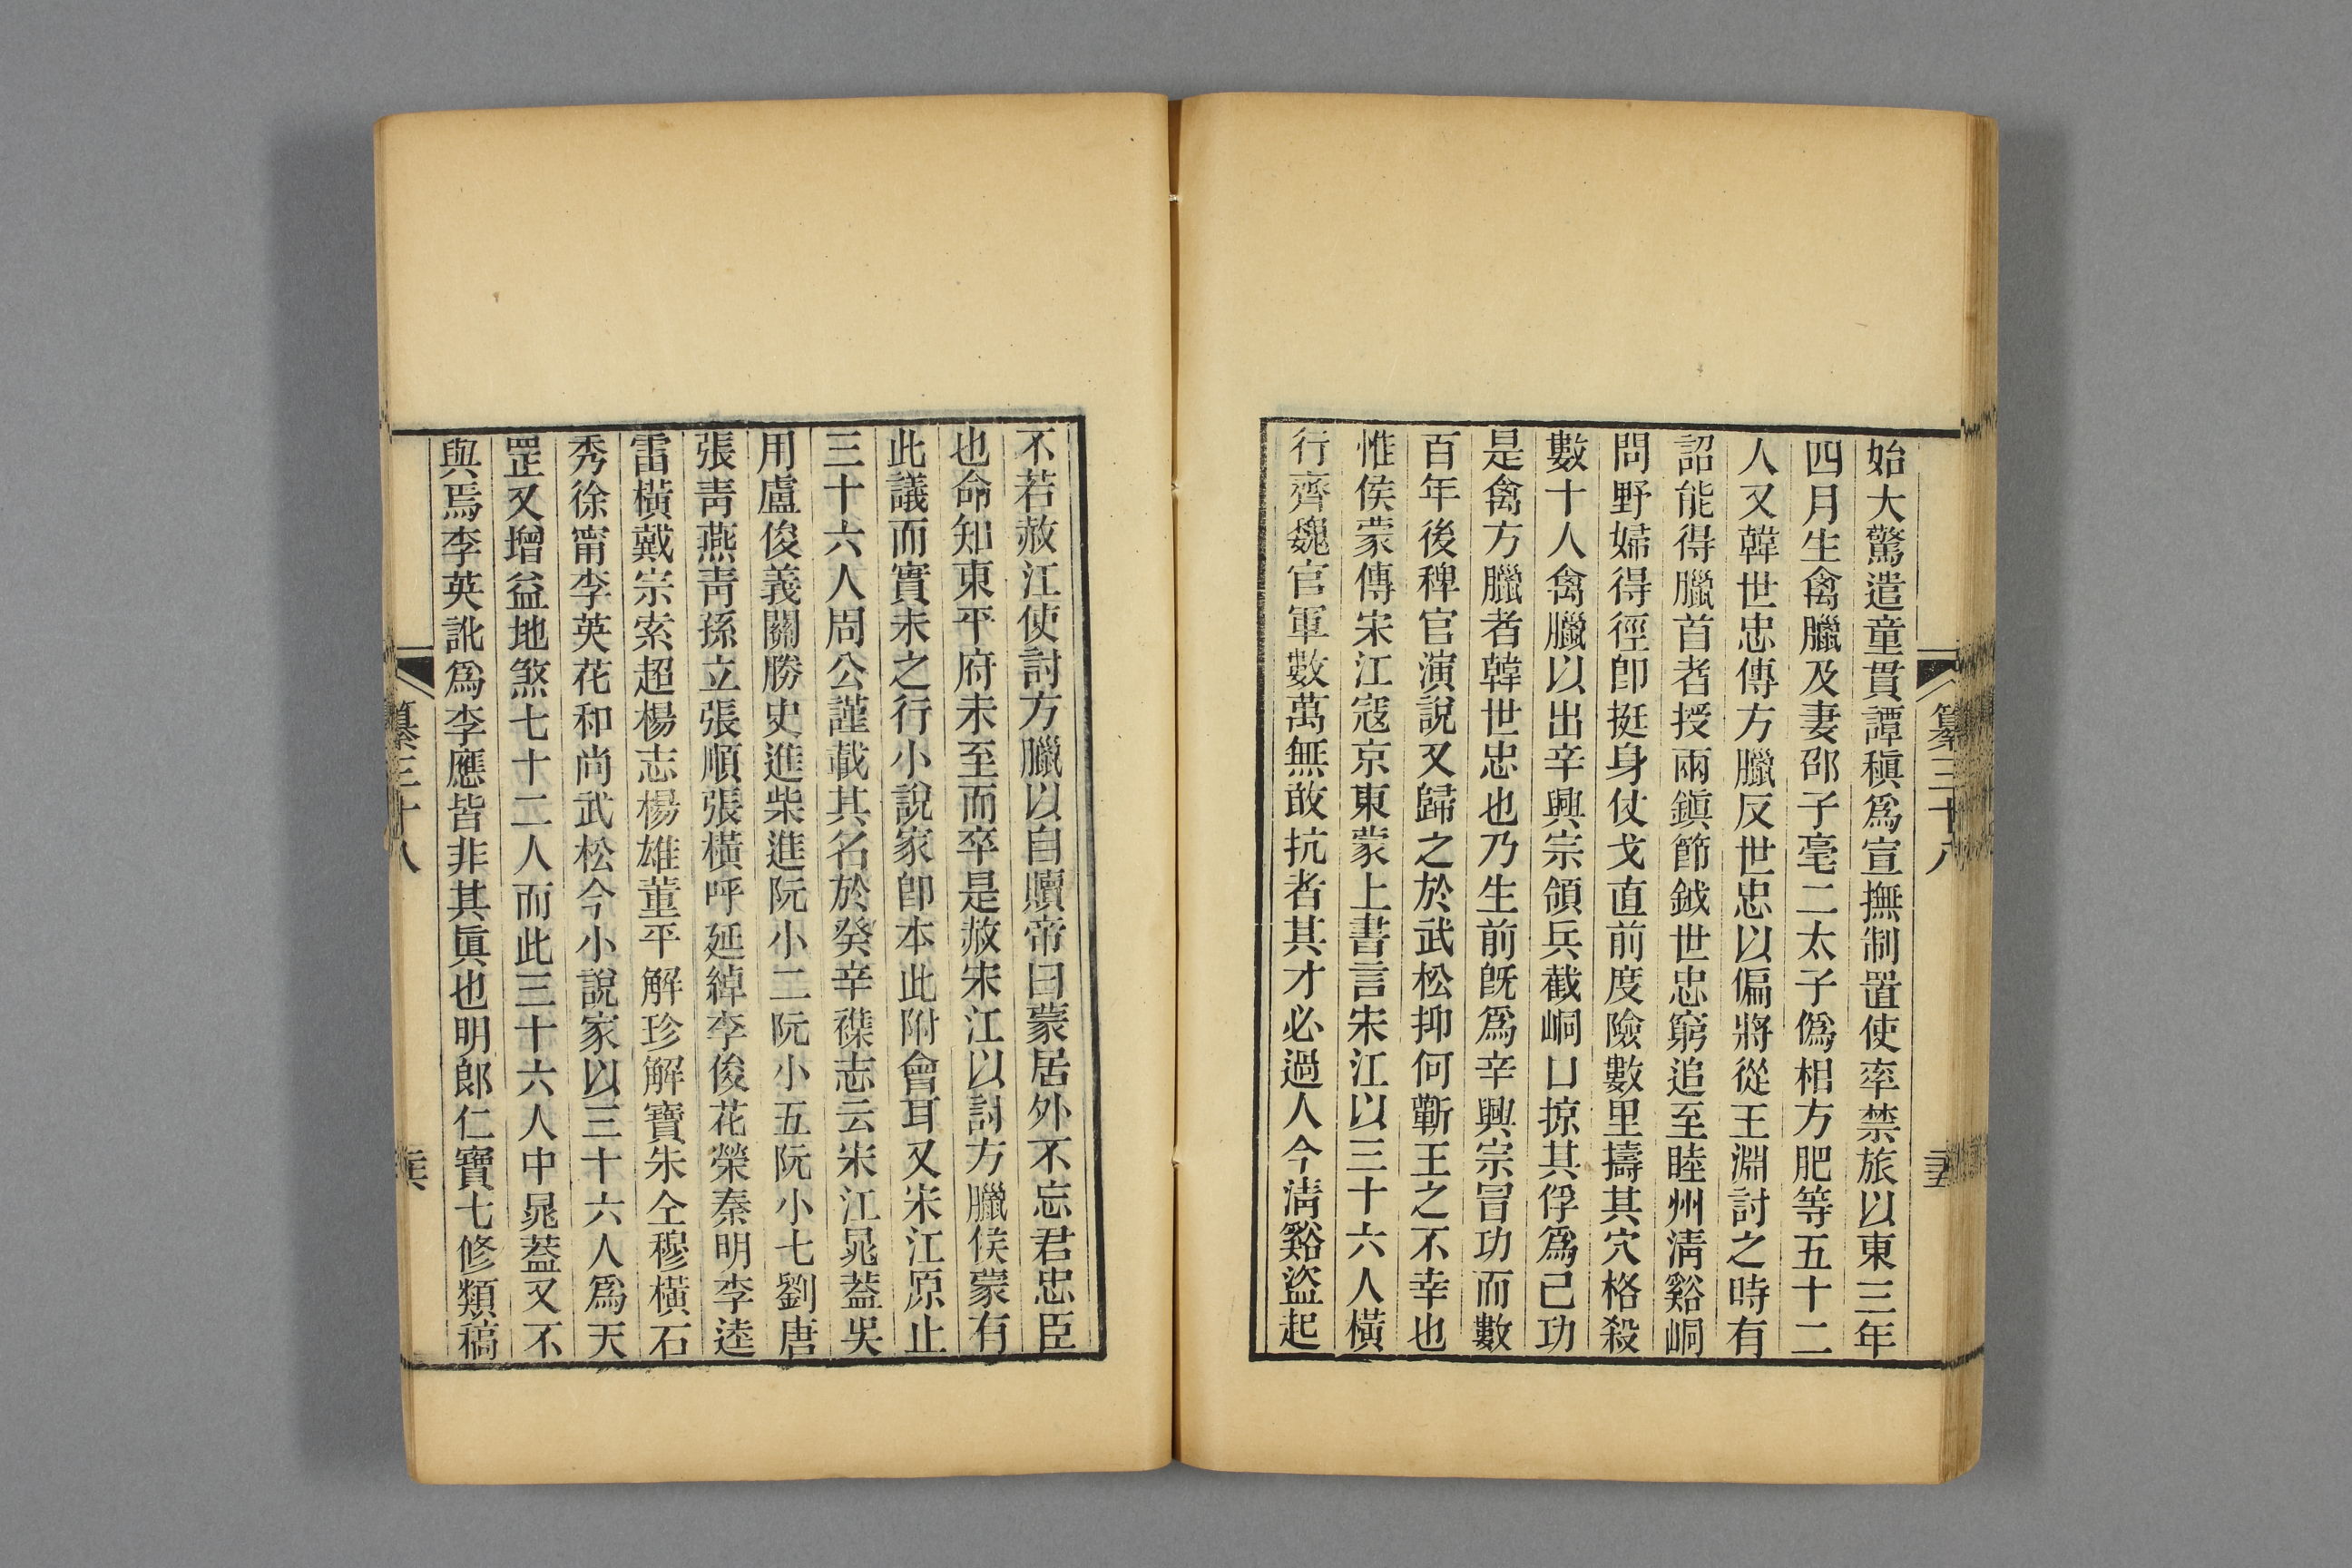 始大驚遣童貫譚稹爲宣撫制置使率禁旅以東三年
四月生禽臘及妻邵子亳二太子僞相方肥等五十二
人又韓世忠傳方臘反世忠以偏將從王淵討之時有
詔能得臘首者授兩鎭節鉞世忠窮追至睦州淸谿峒
問野婦得徑卽挺身仗戈直前度險數里擣其穴格殺
數十人禽臘以出辛興宗領兵截峒口掠其俘爲己功
是禽方臘者韓世忠也乃生前旣爲辛興宗冒功而數
百年後稗官演說又歸之於武松抑何蘄王之不幸也
惟侯蒙傳宋江寇京東蒙上書言宋江以三十六人橫
行齊魏官軍數萬無敢抗者其才必過人今淸谿盜起
纂三十八
不若赦江使討方臘以自贖帝曰蒙居外不忘君忠臣
也命知東平府未至而卒是赦宋江以討方臘侯蒙有
此議而實未之行小說家卽本此附會耳又宋江原止
三十六人周公謹載其名於癸辛襍志云宋江晁蓋吳
用盧俊義關勝史進柴進阮小二阮小五阮小七劉唐
張靑燕靑孫立張順張橫呼延綽李俊花榮秦明李逵
雷橫戴宗索超楊志楊雄董平解珍解寶朱仝穆橫石
秀徐甯李英花和尙武松今小說家以三十六人爲天
罡又增益地煞七十二人而此三十六人中晁蓋又不
與焉李英訛爲李應皆非其眞也明郎仁寶七修類稿
纂三十八